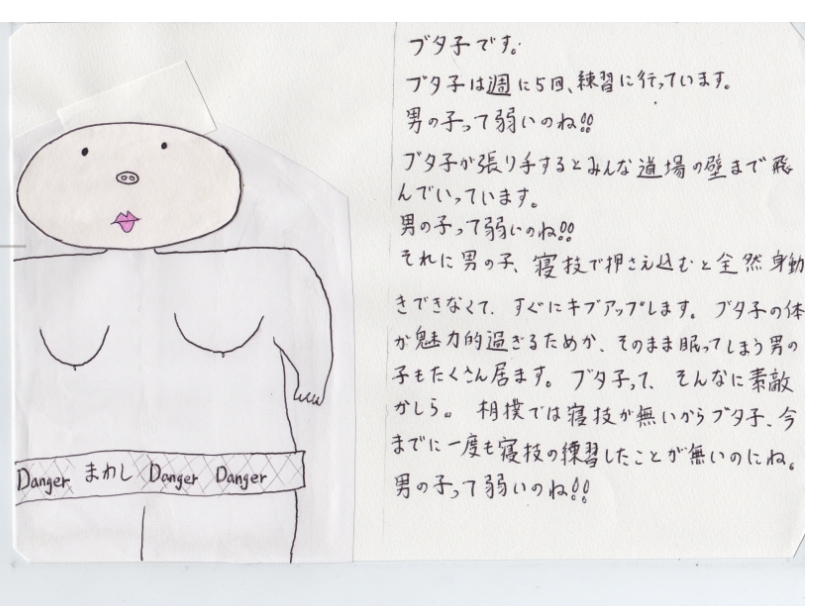 ブタ子です。
ブタ子は週に5回、練習に行っています。
男の子って弱いのね!!
ブタ子が張り手するとみんな道場の壁まで飛
んでいっています。
男の子って弱いのね!!
それに男の子、寝技で押さえ込むと全然身動
きできなくて、すぐにキブアップします。ブタ子の体
が魅力的過ぎるためか、そのまま眠ってしまう男の
子もたくさん居ます。ブタ子って、そんなに素敵
かしら。相撲では寝技が無いからブタ子、今
までに一度も寝技の練習したことが無いのにね。
男の子って弱いのね!!
Danger まわし Danger Danger